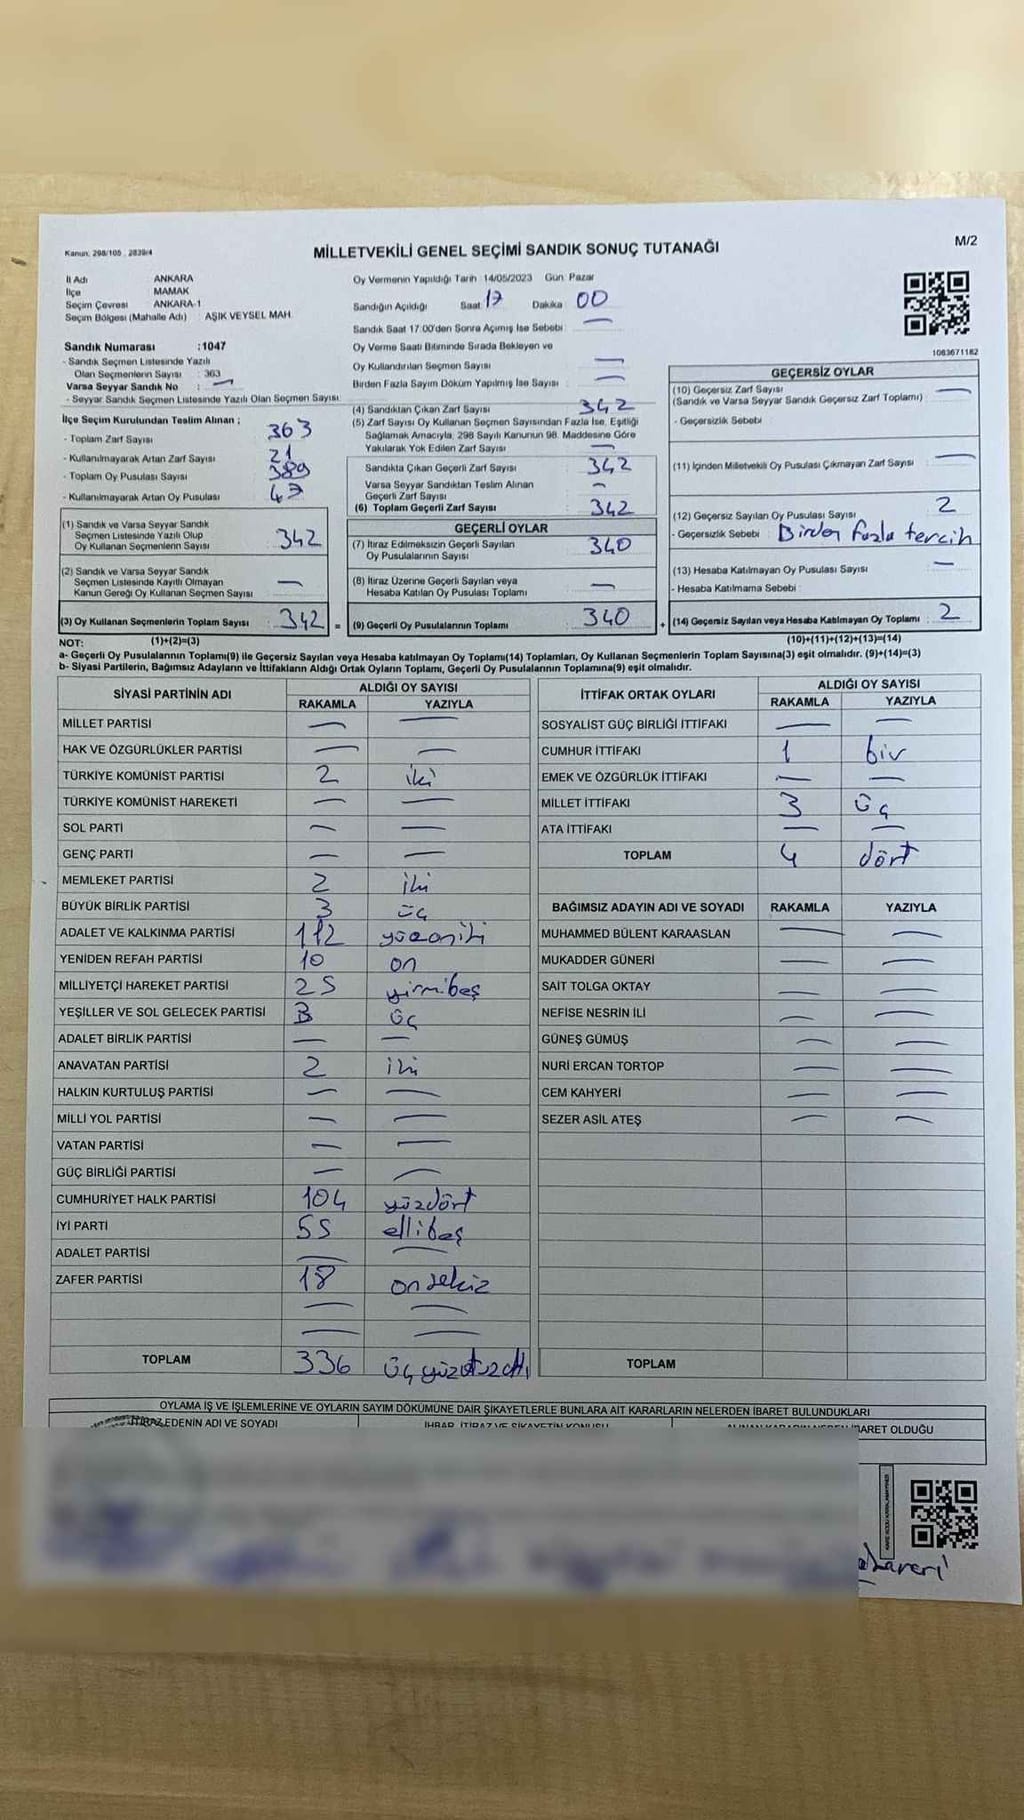 Kanun: 298/105 , 2839/4
MİLLETVEKİLİ GENEL SEÇİMİ SANDIK SONUÇ TUTANAĞI
M/2
İl Adı ANKARA
İlçe MAMAK
Seçim Çevresi ANKARA-1
Seçim Bölgesi (Mahalle Adı) : AŞIK VEYSEL MAH.
Oy Vermenin Yapıldığı Tarih 14/05/2023 Gün: Pazar
Sandığın Açıldığı Saat 17 Dakika 00
Sandık Saat 17:00'den Sonra Açımış İse Sebebi : —
Oy Verme Saati Bitiminde Sırada Bekleyen ve
Oy Kullandırılan Seçmen Sayısı —
Birden Fazla Sayım Döküm Yapılmış İse Sayısı : —
1083671182
Sandık Numarası :1047
- Sandık Seçmen Listesinde Yazılı
Olan Seçmenlerin Sayısı : 363
Varsa Seyyar Sandık No : —
- Seyyar Sandık Seçmen Listesinde Yazılı Olan Seçmen Sayısı:
İlçe Seçim Kurulundan Teslim Alınan ;
- Toplam Zarf Sayısı 363
- Kullanılmayarak Artan Zarf Sayısı 21
- Toplam Oy Pusulası Sayısı 389
- Kullanılmayarak Artan Oy Pusulası 47
(1) Sandık ve Varsa Seyyar Sandık
Seçmen Listesinde Yazılı Olup
Oy Kullanan Seçmenlerin Sayısı 342
(2) Sandık ve Varsa Seyyar Sandık
Seçmen Listesinde Kayıtlı Olmayan
Kanun Gereği Oy Kullanan Seçmen Sayısı —
(3) Oy Kullanan Seçmenlerin Toplam Sayısı 342 =
(4) Sandıktan Çıkan Zarf Sayısı 342
(5) Zarf Sayısı Oy Kullanan Seçmen Sayısından Fazla İse, Eşitliği
Sağlamak Amacıyla, 298 Sayılı Kanunun 98. Maddesine Göre
Yakılarak Yok Edilen Zarf Sayısı —
Sandıkta Çıkan Geçerli Zarf Sayısı 342
Varsa Seyyar Sandıktan Teslim Alınan
Geçerli Zarf Sayısı —
(6) Toplam Geçerli Zarf Sayısı 342
GEÇERLİ OYLAR
(7) İtiraz Edilmeksizin Geçerli Sayılan
Oy Pusulalarının Sayısı 340
(8) İtiraz Üzerine Geçerli Sayılan veya
Hesaba Katılan Oy Pusulası Toplamı —
(9) Geçerli Oy Pusulalarının Toplamı 340 +
GEÇERSİZ OYLAR
(10) Geçersiz Zarf Sayısı —
(Sandık ve Varsa Seyyar Sandık Geçersiz Zarf Toplamı)
- Geçersizlik Sebebi
(11) İçinden Milletvekili Oy Pusulası Çıkmayan Zarf Sayısı —
(12) Geçersiz Sayılan Oy Pusulası Sayısı 2
- Geçersizlik Sebebi : Birden fazla tercih
(13) Hesaba Katılmayan Oy Pusulası Sayısı —
- Hesaba Katılmama Sebebi
(14) Geçersiz Sayılan veya Hesaba Katılmayan Oy Toplamı 2
NOT: (1)+(2)=(3) (10)+(11)+(12)+(13)=(14)
a- Geçerli Oy Pusulalarının Toplamı(9) ile Geçersiz Sayılan veya Hesaba katılmayan Oy Toplamı(14) Toplamları, Oy Kullanan Seçmenlerin Toplam Sayısına(3) eşit olmalıdır. (9)+(14)=(3)
b- Siyasi Partilerin, Bağımsız Adayların ve İttifakların Aldığı Ortak Oyların Toplamı, Geçerli Oy Pusulalarının Toplamına(9) eşit olmalıdır.
SİYASİ PARTİNİN ADI ALDIĞI OY SAYISI
RAKAMLA YAZIYLA
MİLLET PARTİSİ — —
HAK VE ÖZGÜRLÜKLER PARTİSİ — —
TÜRKİYE KOMÜNİST PARTİSİ 2 iki
TÜRKİYE KOMÜNİST HAREKETİ — —
SOL PARTİ — —
GENÇ PARTİ — —
MEMLEKET PARTİSİ 2 iki
BÜYÜK BİRLİK PARTİSİ 3 üç
ADALET VE KALKINMA PARTİSİ 112 yüzoniki
YENİDEN REFAH PARTİSİ 10 on
MİLLİYETÇİ HAREKET PARTİSİ 25 yirmibeş
YEŞİLLER VE SOL GELECEK PARTİSİ 3 üç
ADALET BİRLİK PARTİSİ — —
ANAVATAN PARTİSİ 2 iki
HALKIN KURTULUŞ PARTİSİ — —
MİLLİ YOL PARTİSİ — —
VATAN PARTİSİ — —
GÜÇ BİRLİĞİ PARTİSİ — —
CUMHURİYET HALK PARTİSİ 104 yüzdört
İYİ PARTİ 55 ellibeş
ADALET PARTİSİ — —
ZAFER PARTİSİ 18 onsekiz
— —
— —
TOPLAM 336 üçyüzotuzaltı
İTTİFAK ORTAK OYLARI ALDIĞI OY SAYISI
RAKAMLA YAZIYLA
SOSYALİST GÜÇ BİRLİĞİ İTTİFAKI — —
CUMHUR İTTİFAKI 1 bir
EMEK VE ÖZGÜRLÜK İTTİFAKI — —
MİLLET İTTİFAKI 3 üç
ATA İTTİFAKI — —
TOPLAM 4 dört
BAĞIMSIZ ADAYIN ADI VE SOYADI RAKAMLA YAZIYLA
MUHAMMED BÜLENT KARAASLAN — —
MUKADDER GÜNERİ — —
SAİT TOLGA OKTAY — —
NEFİSE NESRİN İLİ — —
GÜNEŞ GÜMÜŞ — —
NURİ ERCAN TORTOP — —
CEM KAHYERİ — —
SEZER ASİL ATEŞ — —
TOPLAM
OYLAMA İŞ VE İŞLEMLERİNE VE OYLARIN SAYIM DÖKÜMÜNE DAİR ŞİKAYETLERLE BUNLARA AİT KARARLARIN NELERDEN İBARET BULUNDUKLARI
İTİRAZ EDENİN ADI VE SOYADI
İHBAR, İTİRAZ VE ŞİKAYETİN KONUSU
İBARET OLDUĞU